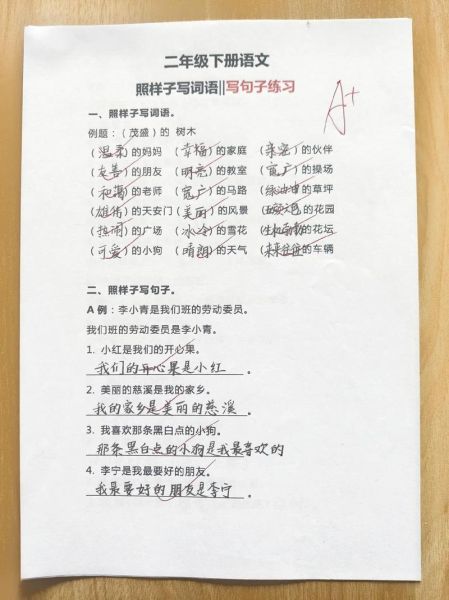 二年级下册语文
照样子写词语||写句子练习
A+
一、照样子写词语。
例题：（茂盛）的 树木
（温柔）的妈妈 （幸福）的家庭 （亲密）的伙伴
（友善）的朋友 （明亮）的教室 （宽广）的操场
（和蔼）的老师 （宽广）的马路 （绿油油）的草坪
（雄伟）的天安门（美丽）的风景 （五颜六色）的花园
（热闹）的广场 （冰冷）的雪花 （生机勃勃）的花坛
（可爱）的小狗 （晴朗）的天气 （来来往往）的车辆
二、照样子写句子。
A 例：李小青是我们班的劳动委员。
我们班的劳动委员是李小青。
1. 小红是我们的开心果。
我们的开心果是小红 。
2. 美丽的慈溪是我的家乡。
我的家乡是美丽的慈溪 。
3. 我喜欢那条黑白点的小狗。
那条黑白点的小狗是我最喜欢的
4. 李宁是我最要好的朋友。
我最要好的朋友是李宁 。